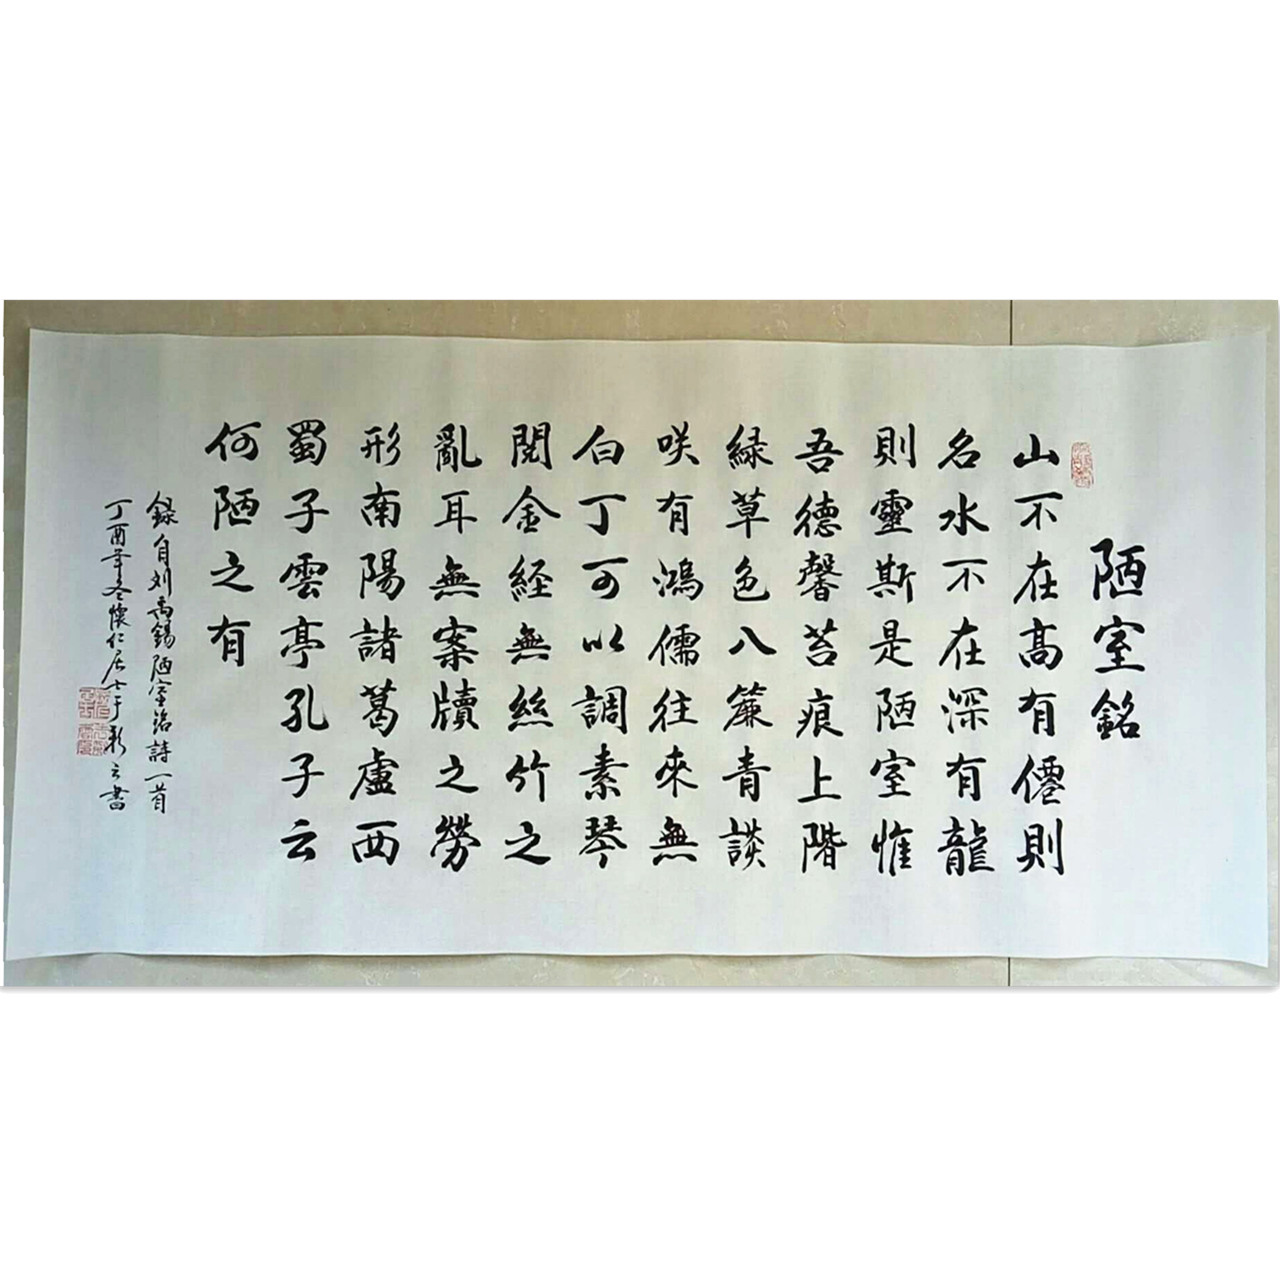 陋室銘
山不在高有僊則
名水不在深有龍
則靈斯是陋室惟
吾德馨苔痕上階
緑草色入簾青談
咲有鴻儒往來無
白丁可以調素琴
閲金経無絲竹之
亂耳無案牘之勞
形南陽諸葛盧西
蜀子雲亭孔子云
何陋之有
錄自刘禹錫陋室銘詩一首
丁酉年冬懷仁居士于彩云書